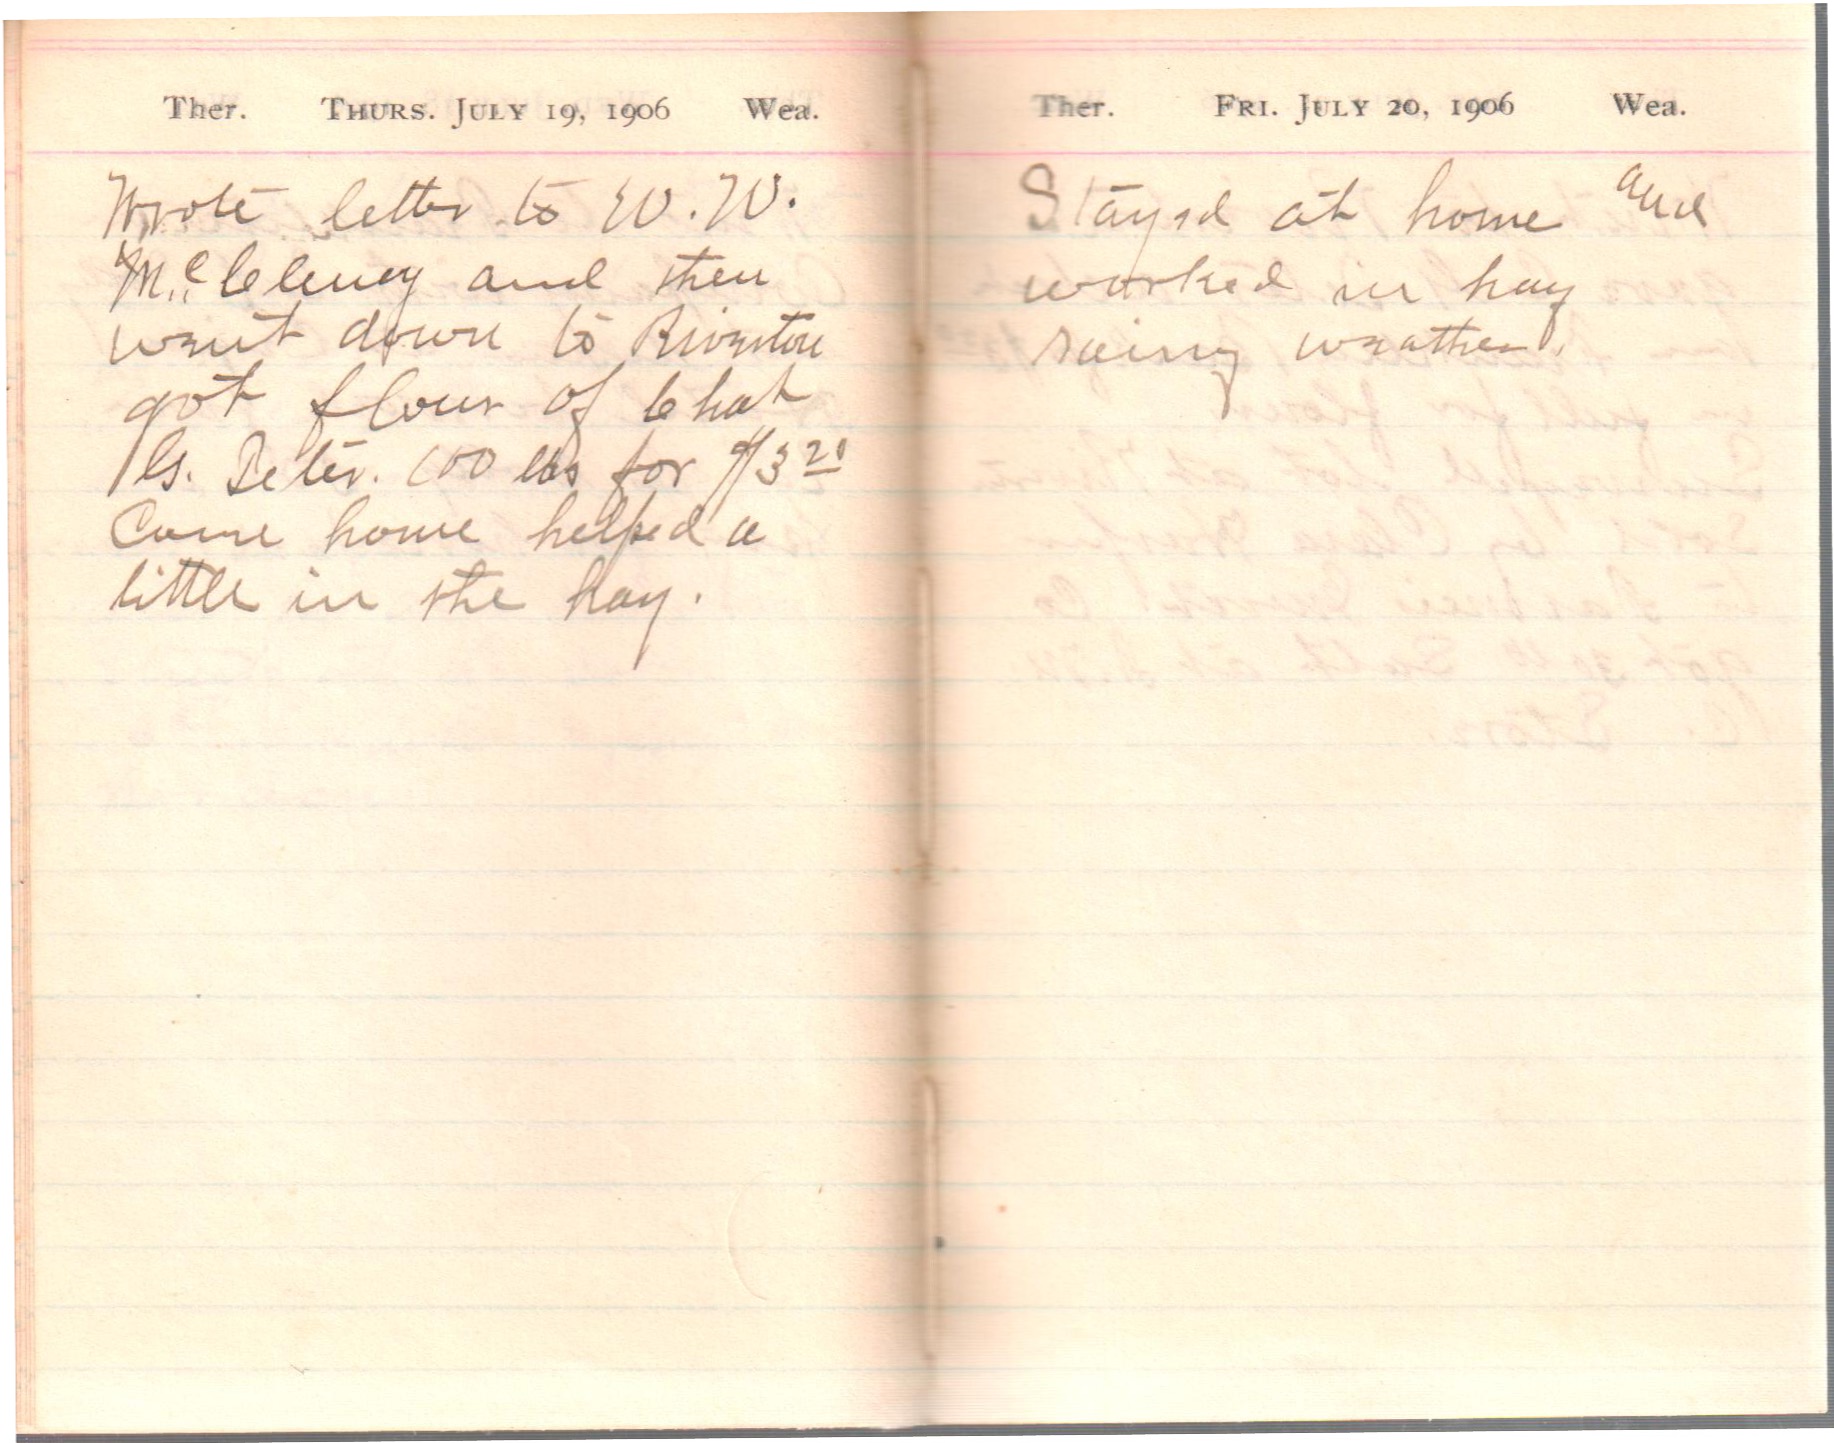 Ther. THURS. JULY 19, 1906 Wea.
Wrote letter to W. W.
McCleney and then
went down to Riverton
got flour of Chat
G. Peter. 100 lbs for $3 20
Came home helped a
little in the hay.
Ther. FRI. JULY 20, 1906 Wea.
Stayed at home and
worked in hay
rainy weather.